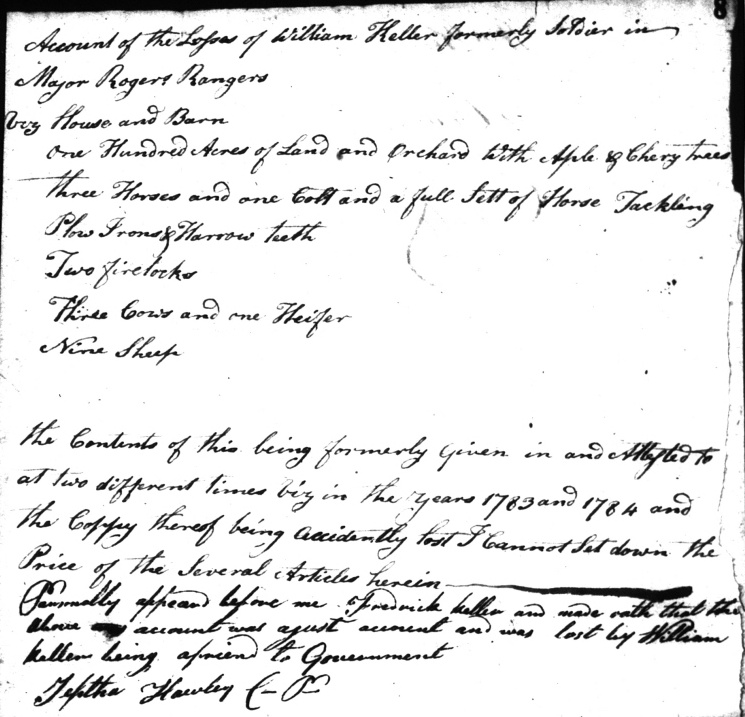 8
Account of the Losses of William Keller formerly Soldier in
Major Rogers Rangers
Viz House and Barn
One Hundred Acres of Land and Orchard With Aple & Chery trees
three Horses and one Colt and a full Sett of Horse Tackling
Plow Irons & Harrow teeth
Two firelocks
Three Cows and one Heifer
Nine Sheep
the Contents of this being formerly Given in and Attested to
at two different times Viz in the Years 1783 and 1784 and
the Coppy thereof being accidently lost I Cannot Set down the
Price of the Several Articles herein
Parsonally appeard before me Fredrick Keller and made oath that the
above account was a just account and was lost by William
Keller being a friend to Government
Jeptha Hawley